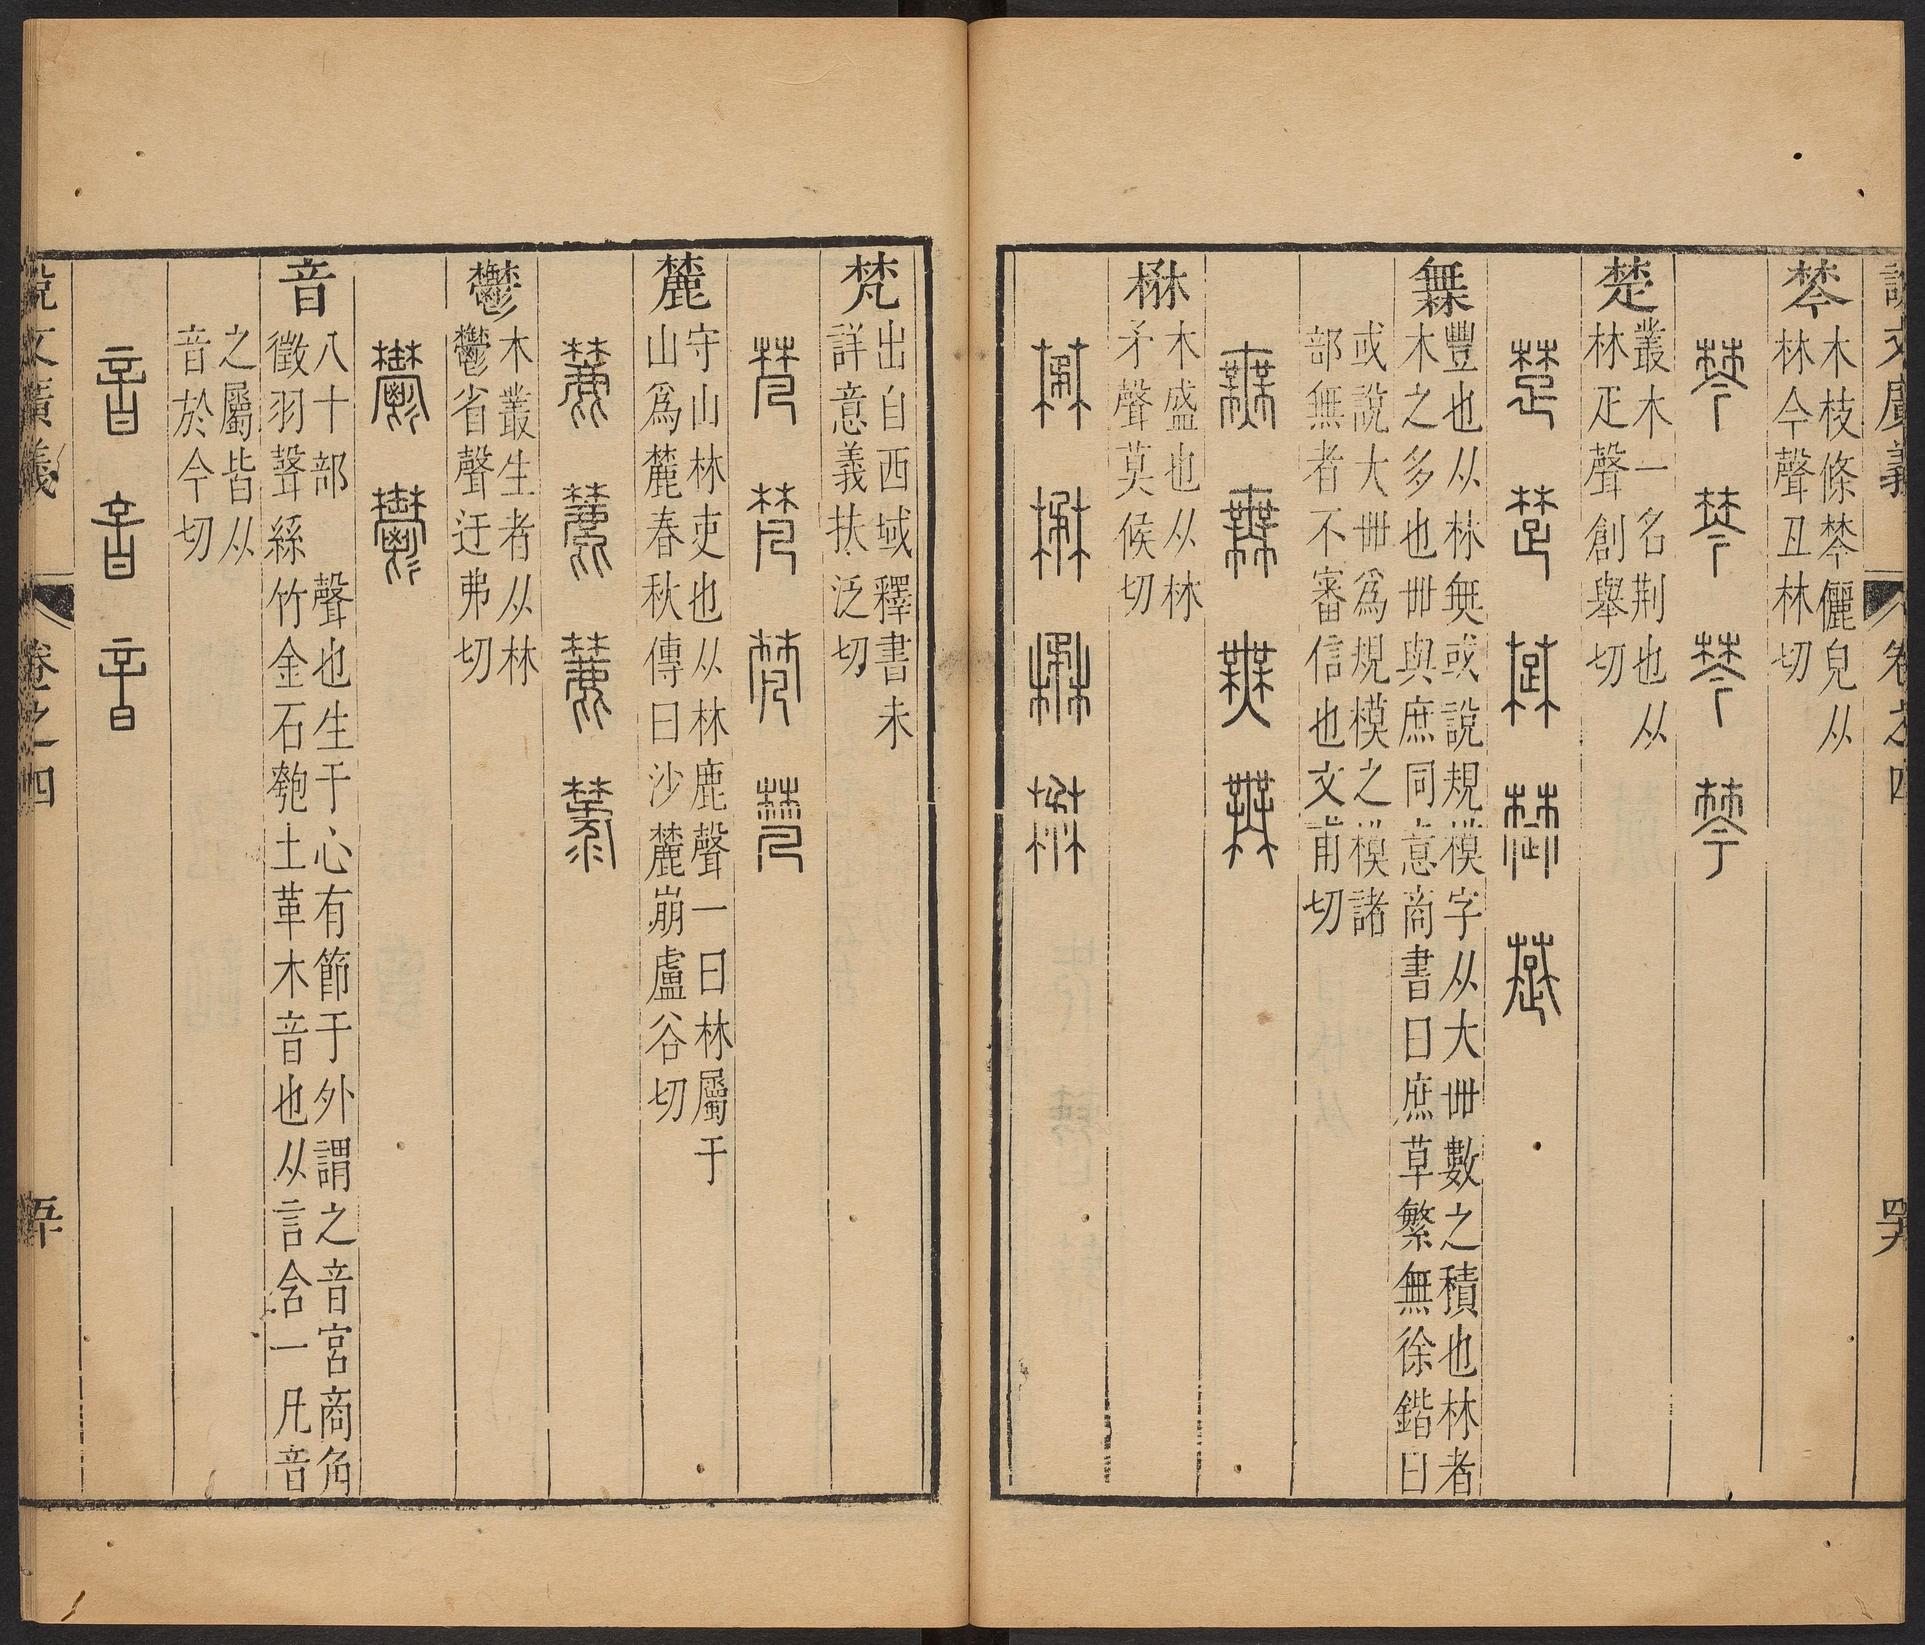 說文廣義
卷之四
棽
木枝條棽儷皃从
林今聲丑林切
楚
叢木一名荆也从
林疋聲創舉切
無
豐也从林奭或說規模字从大卌數之積也林者
木之多也卌與庶同意商書曰庶草繁無徐鍇曰
或說大卌爲規模之模諸
部無者不審信也文甫切
楙
木盛也从林
矛聲莫候切
梵
出自西域釋書未
詳意義扶泛切
麓
守山林吏也从林鹿聲一曰林屬于
山爲麓春秋傳曰沙麓崩盧谷切
鬱
木叢生者从林
鬱省聲迂弗切
音
八十部 聲也生于心有節于外謂之音宮商角
徵羽聲絲竹金石匏土革木音也从言含一凡音
之屬皆从
音於今切
說文廣義
卷之四